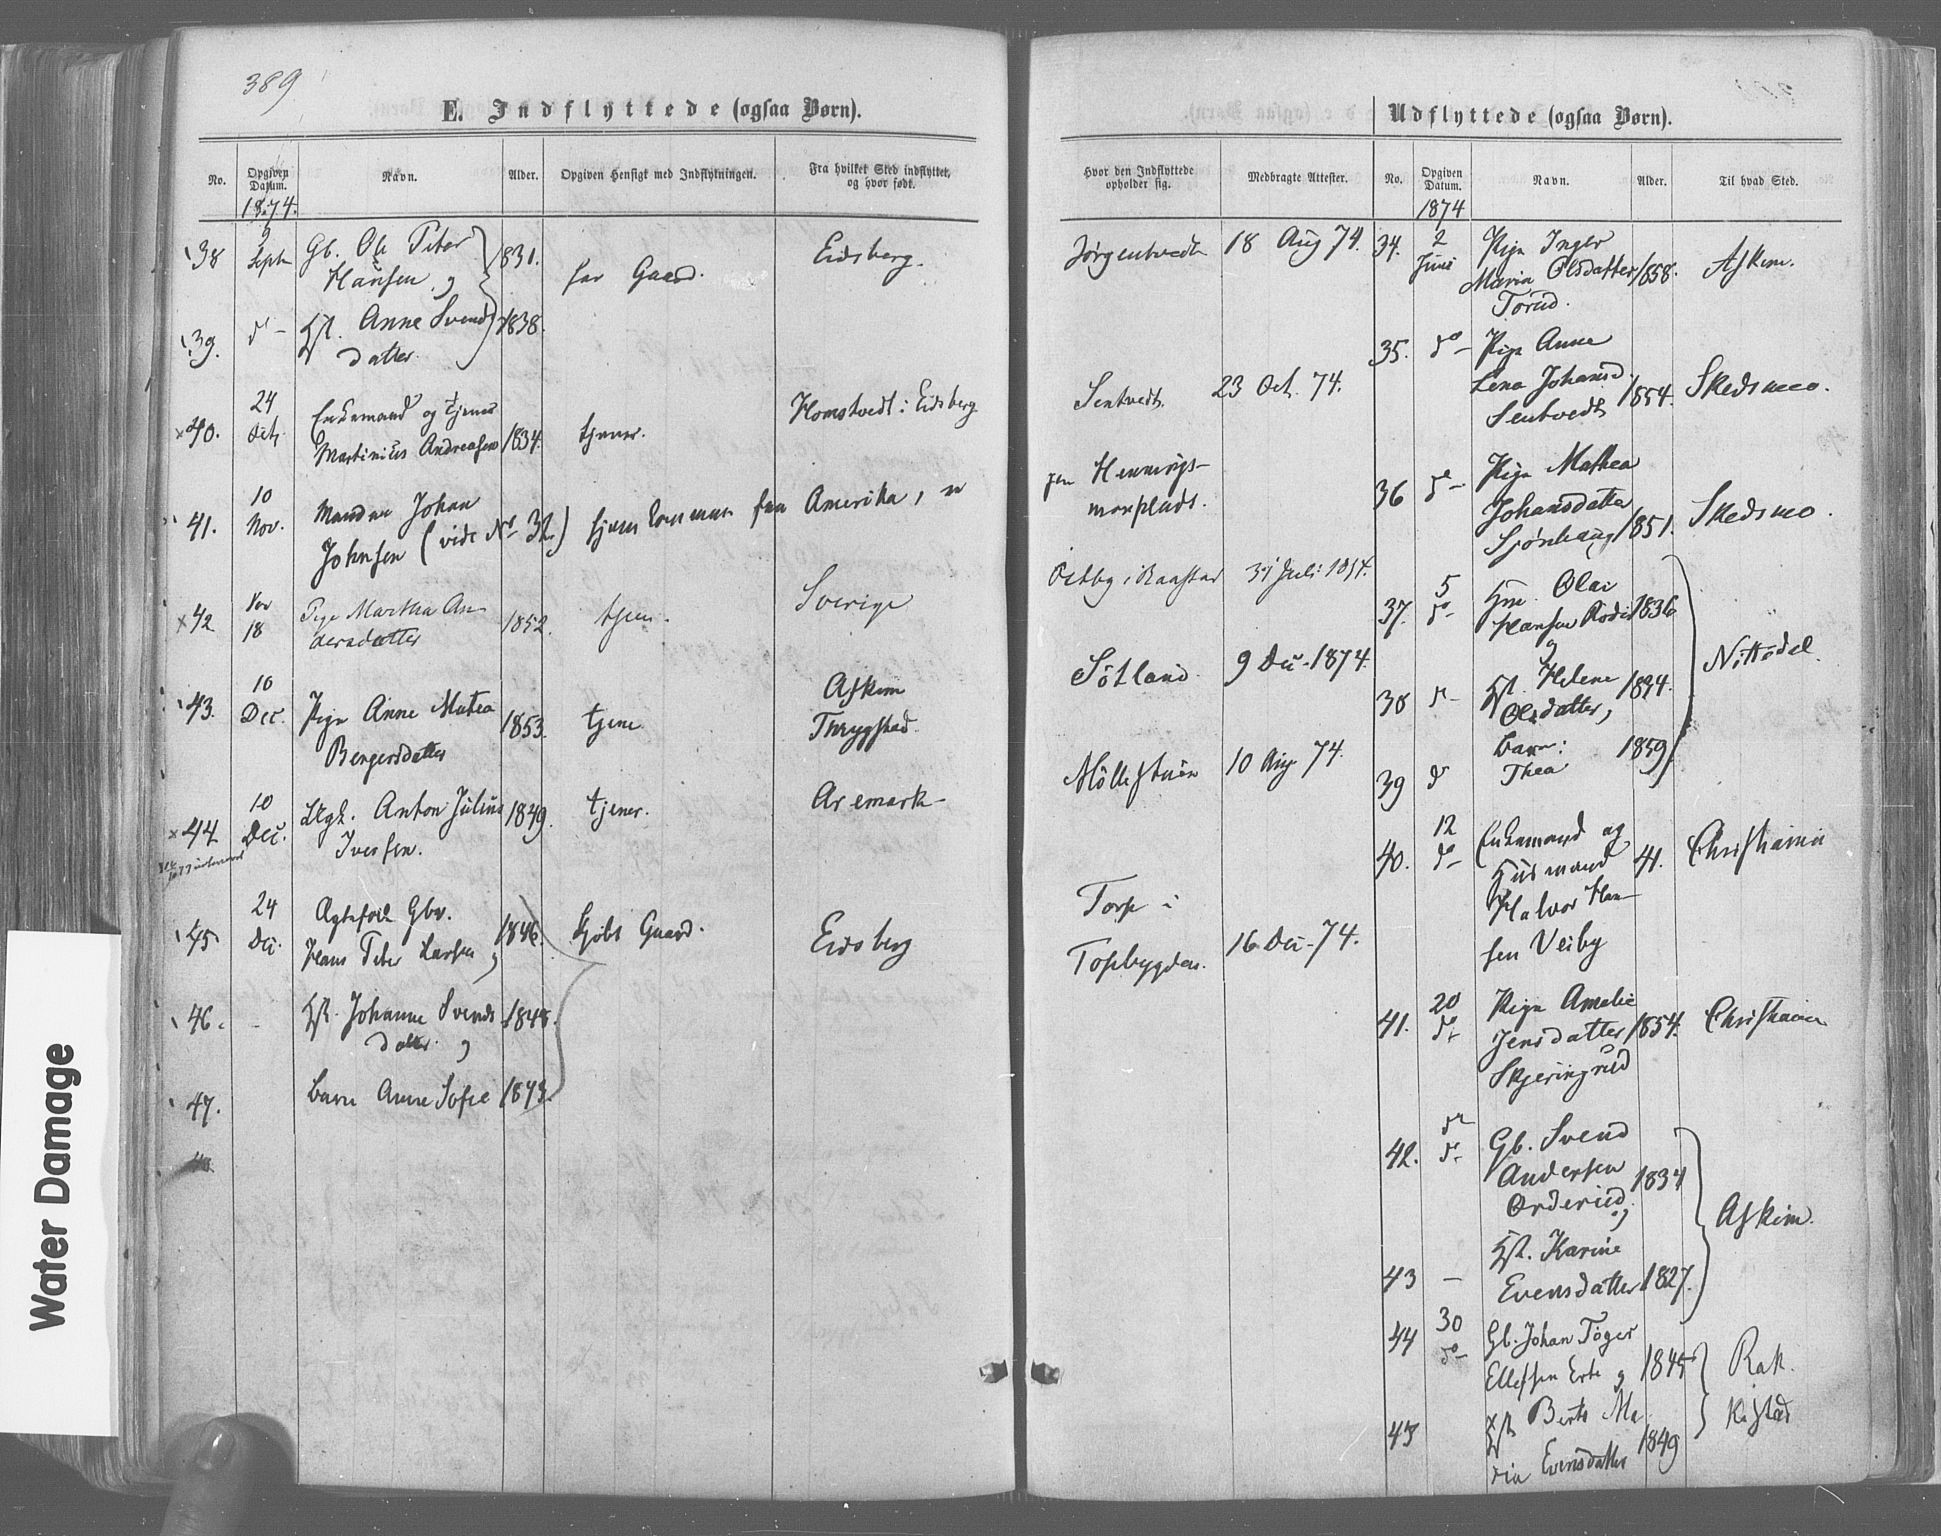 389
E. Indflyttede (ogsaa Børn).
No. Opgiven Datum. Navn. Alder. Opgiven Hensigt med Indflytningen. Fra hvilket Sted indflyttet, og hvor født.
1874.
38 Sept Gb. Ole Peter 1831. Eidsberg.
Hansen, og har Gaard.
39. do - Hst. Anne Svends 1838.
datter
24
40. Oct. Enkemand og tjener Homstvedt i Eidsberg
Martinius Andreasen 1834. tjener.
10
41. Nov. Manden Johan
Johnsen (vide No 32.) hjemkommen fra Amerika,
42 Nov 18 Pige Martha An- 1852. tjen. Sverige
dersdatter
10 Askim
43. Dec. Pige Anne Mathea 1853. tjene Thrygstad.
Bergersdatter
10
44 Dec. Ungk. Anton Julius 1849. tjener. Aremark
Iversen.
24
45 Dec. Ægtefolk Gbr. 1846. Kjøbt Gaard. Eidsberg
Hans Peter Larsen og
46. - Hst. Johanne Svends 1848.
datter og
47. Barn Anne Sofie 1873.
Udflyttede (ogsaa Børn).
Hvor den Indflyttede opholder sig. Medbragte Attester. No. Opgiven Datum. Navn. Alder. Til hvad Sted.
1874
Jørgentvedt 18 Aug 74.
Sentvedt 23 Oct. 74.
Hennings-
moxplads.
Østby i Raastad 31 Juli 1854.
Sötland 9 Dec. 1874.
Möllestuen 10 Aug. 74.
Torp i
Topbygden. 16 Dec. 74.
34. 2 Juni Pige Inger
Maria Olsdatter 1858. Askim.
Törud.
35. do - Pige Anne
Lena Johansd. 1854. Skedsmo.
Sentvedt
36 do - Pige Mathea
Johansdatter
Sjønhaug 1851. Skedsmo.
5
37. do - Hm. Olai
Hansen 1836
og
38 do - Hst. Helene 1834. Nittedal.
Olsdatter,
Barn: 1859
39 do Thea
12
40. do - Enkemand og
Husmand 41. Christiania
Halvor Han-
sen Veiby
20
41. do - Pige Amalie
Jensdatter 1854. Christiania
Skjeringrud
do
42. do - Gb. Svend
Andersen 1834
Orderud, og Askim.
Hst. Karine
43 - Evensdatter 1827.
30
44 do - Gb. Johan Töger
Ellefsen Erte og 1845 Rak-
45 Hst Berte Ma- kestad
ria Evensdatter 1849
Water Damage